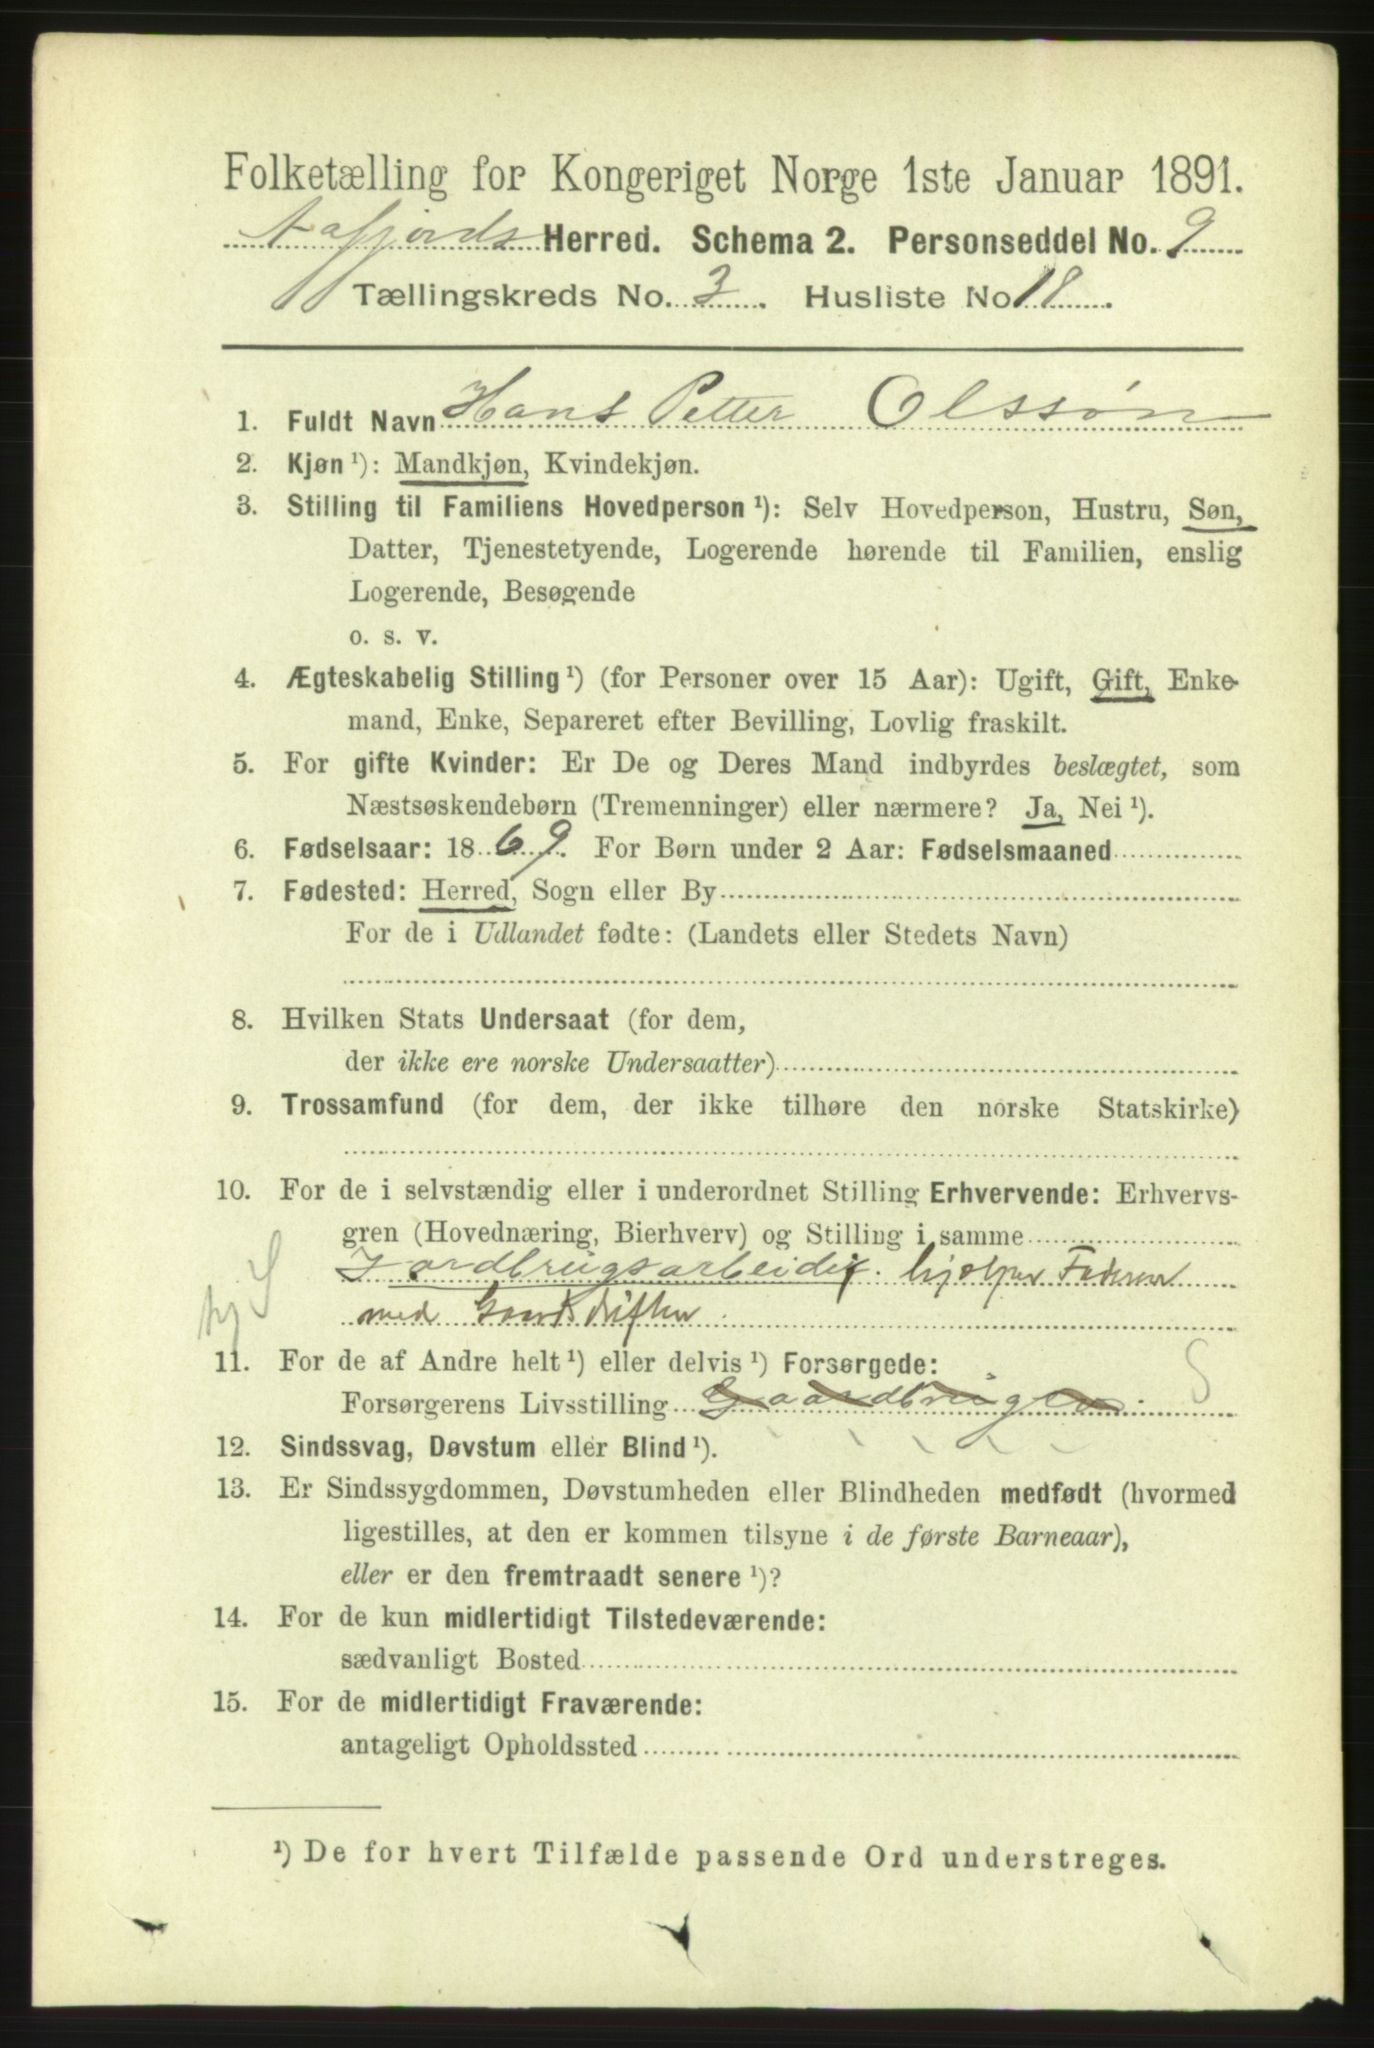 Folketælling for Kongeriget Norge 1ste Januar 1891.
Aafjords Herred. Schema 2. Personseddel No. 9
Tællingskreds No. 3. Husliste No 18.
1. Fuldt Navn Hans Petter Olssøn
2. Kjøn ¹): Mandkjøn, Kvindekjøn.
3. Stilling til Familiens Hovedperson ¹): Selv Hovedperson, Hustru, Søn,
Datter, Tjenestetyende, Logerende hørende til Familien, enslig
Logerende, Besøgende
o. s. v.
4. Ægteskabelig Stilling ¹) (for Personer over 15 Aar): Ugift, Gift, Enke-
mand, Enke, Separeret efter Bevilling, Lovlig fraskilt.
5. For gifte Kvinder: Er De og Deres Mand indbyrdes beslægtet, som
Næstsøskendebørn (Tremenninger) eller nærmere? Ja, Nei ¹).
6. Fødselsaar: 1869. For Børn under 2 Aar: Fødselsmaaned
7. Fødested: Herred, Sogn eller By
For de i Udlandet fødte: (Landets eller Stedets Navn)
8. Hvilken Stats Undersaat (for dem,
der ikke ere norske Undersaatter)
9. Trossamfund (for dem, der ikke tilhøre den norske Statskirke)
10. For de i selvstændig eller i underordnet Stilling Erhvervende: Erhvervs-
gren (Hovednæring, Bierhverv) og Stilling i samme
Jordbrugsarbeider. hjælper Faderen
med Gaardsdriften.
hj S
11. For de af Andre helt ¹) eller delvis ¹) Forsørgede:
Forsørgerens Livsstilling Gaardbruger. S
12. Sindssvag, Døvstum eller Blind ¹).
13. Er Sindssygdommen, Døvstumheden eller Blindheden medfødt (hvormed
ligestilles, at den er kommen tilsyne i de første Barneaar),
eller er den fremtraadt senere ¹)?
14. For de kun midlertidigt Tilstedeværende:
sædvanligt Bosted
15. For de midlertidigt Fraværende:
antageligt Opholdssted
¹) De for hvert Tilfælde passende Ord understreges.